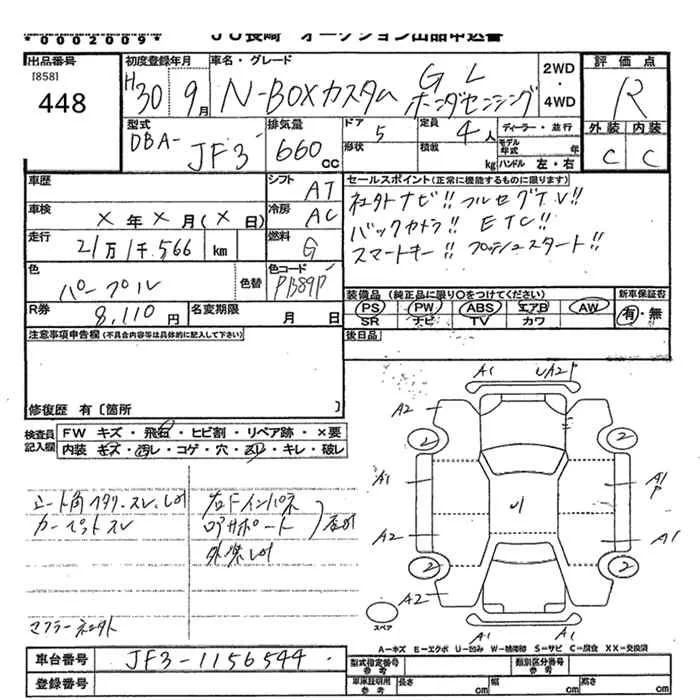 *0002009*
JU長崎 オークション出品申込書
出品番号
[858]
448
初度登録年月
H30 9月
車名・グレード
N-BOXカスタム GL ホンダセンシング
2WD
・
4WD
評価点
R
外装 内装
C C
型式
DBA-
JF3
排気量
660 CC
ドア
5
形状
定員
4人
積載
kg
ディーラー・並行
モデル年式 年
ハンドル 左・右
車歴
シフト AT
車検 × 年 × 月(×日)
冷房 AC
走行 21万1千566 km
燃料 G
色 パープル 色替
色コード PB89P
R券 8,110円
名変期限 月 日
セールスポイント(正常に機能するものに限ります)
社外ナビ!! フルセグTV!!
バックカメラ!! ETC!!
スマートキー!! プッシュスタート!!
装備品 (純正品に限り○をつけてください)
新車保証書
PS PW ABS エアB AW
有・無
SR ナビ TV カワ
後日品
注意事項申告欄(不具合内容等は具体的に記入して下さい)
修復歴 有〔箇所 〕
検査員記入欄
FW キズ・飛石・ヒビ割・リペア跡・×要
内装 キズ・汚レ・コゲ・穴・スレ・キレ・破レ
カーペットスレ
右Fインパネ
A1 UA2P
A2
2 2
A1 A1P
U
A2 A1
2 2
A2
A1 A1
スペア
A=キズ E=エクボ U=凹み W=補修跡 S=サビ C=腐食 XX=交換済
車台番号 JF3-1156544
登録番号
型式指定番号
参考
類別区分番号
参考
車庫証明用
参考
長さ cm 幅 cm 高さ cm